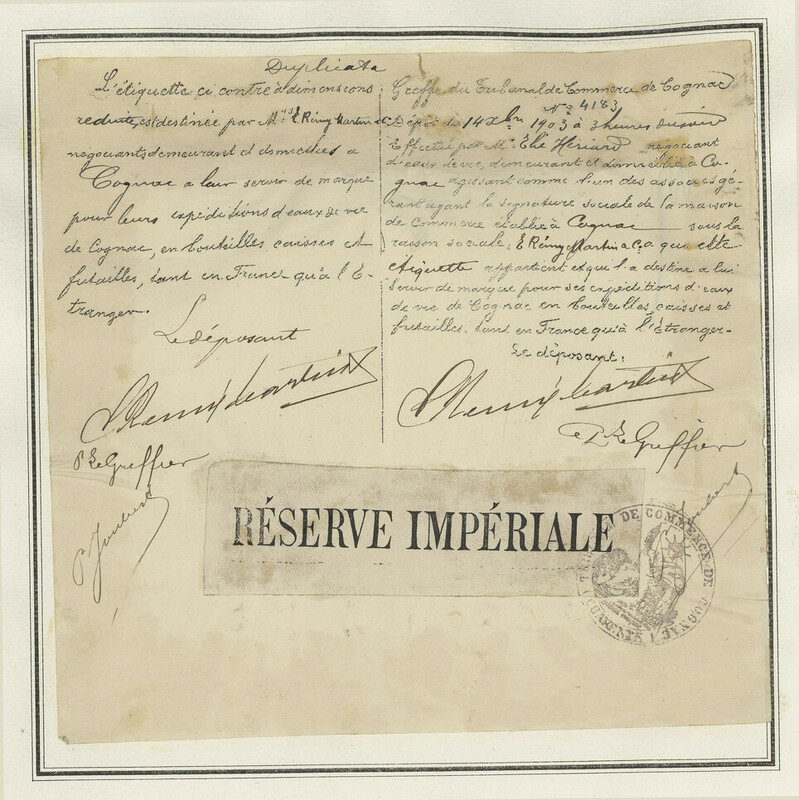 Duplicata
L'étiquette ci contre à dimensions
reduites, est destinée par Mrs E Rémy Martin & Co
négociants demeurant et domiciliés à
Cognac a leur servir de marque
pour leurs expéditions d'eaux de vie
de Cognac, en bouteilles caisses et
futailles, tant en France qu'à l'É-
tranger.
Le déposant
E Remy Martin & Co
Pr Le Greffier
P. Joubert
Greffe du Tribunal de Commerce de Cognac
No 4183
Dépôt du 14 Xbre 1903 à 3 heures du soir
Effectué par Mr Elie Hériard négociant
d'eaux de vie, demeurant et domicilié à Co-
gnac agissant comme l'un des associés gé-
rant ayant la signature sociale de la maison
de Commerce établie à Cognac sous la
raison sociale: E Rémy Martin & Co que cette
étiquette appartient et qu'il a destine a lui
servir de marque pour ses expéditions d'eaux
de vie de Cognac en bouteilles, caisses et
futailles. tant en France qu'à l'Étranger-
Le déposant:
E Remy Martin & Co
Pr Le Greffier
Joubert
RÉSERVE IMPÉRIALE
DE COMMERCE DE COGNAC